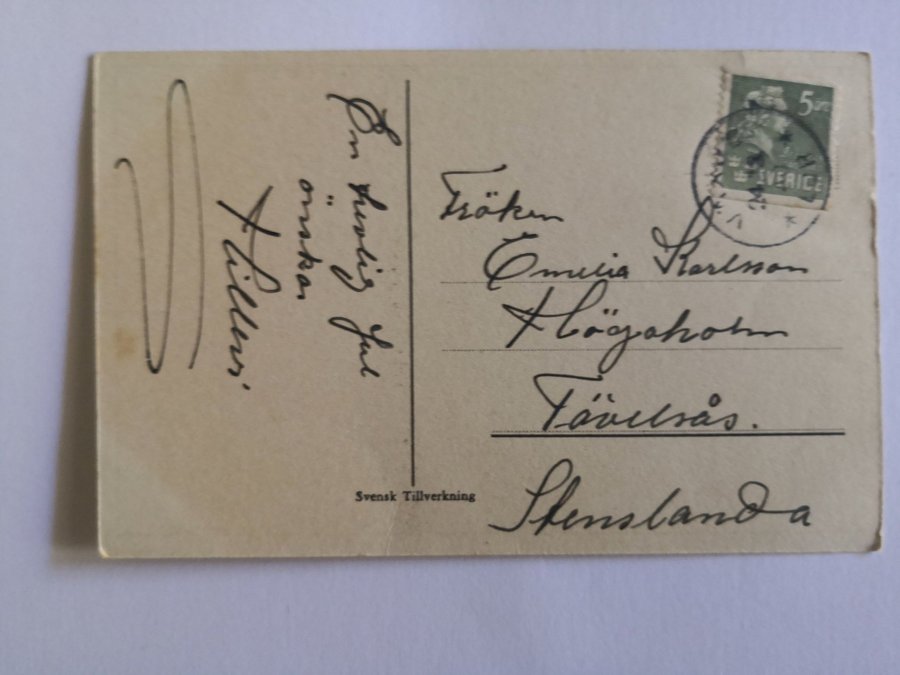 En trevlig Jul
önskar
5 öre
SVERIGE
Fröken
Emelia Karlsson
Högaholm
Tävelsås.
Stenslanda
Svensk Tillverkning